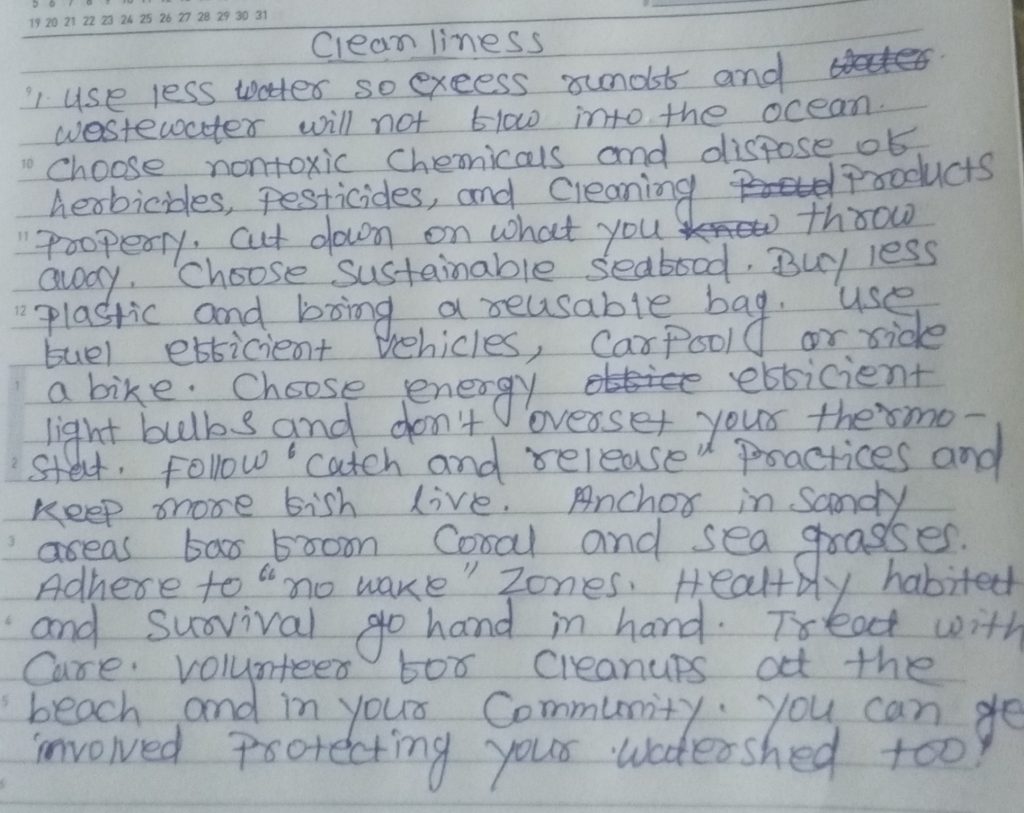 19 20 21 22 23 24 25 26 27 28 29 30 31
Cleanliness
1. use less water so exeess runoff and water
wastewater will not flow into the ocean.
10 choose nontoxic chemicals and dispose of
herbicides, pesticides, and cleaning Products
11 properly. cut down on what you know throw
away. Choose sustainable seafood. Buy less
12 plastic and bring a reusable bag. use
fuel efficient vehicles, carpool or ride
1 a bike. Choose energy office efficient
light bulbs and don't overset your thermo-
2 stat. Follow "catch and release" practices and
keep more fish live. Anchor in sandy
3 areas far from coral and sea grasses.
Adhere to "no wake" zones. Healthy habitat
4 and survival go hand in hand. Treat with
Care. volunteer for cleanups at the
5 beach and in your Community. you can ge
involved protecting your watershed too!
6